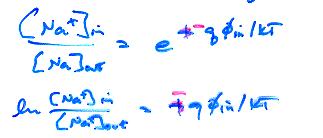 [Na⁺]in / [Na]out = e^(- q ϕin/kT)
ln [Na⁺]in / [Na⁺]out = - q ϕin/kT